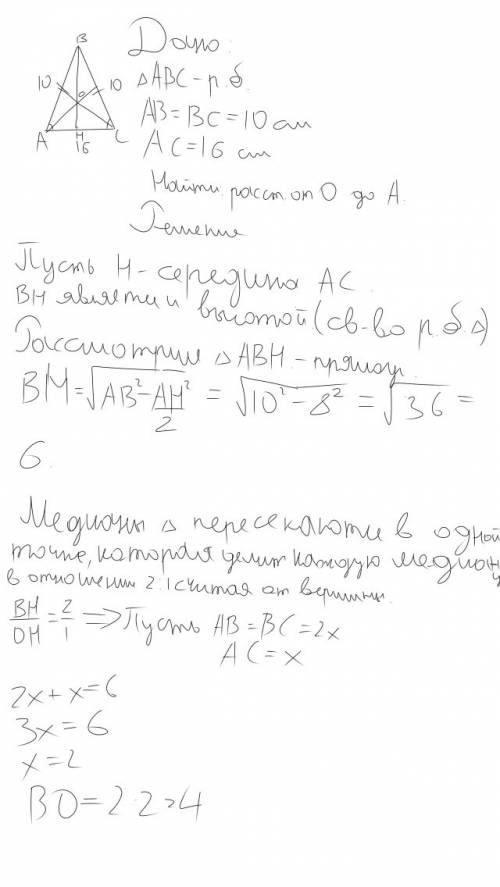 B
10
10
O
A
H
C
16
Дано:
△ABC - р.б.
AB=BC=10 см
AC=16 см
Найти: расст. от O до A.
Решение
Пусть H - середина AC.
BH является и высотой (св-во р.б.△)
Рассмотрим △ABH - прямоуг.
BM=√AB²-AH²/2 = √10²-8² = √36 =
6.
Медианы △ пересекаются в одной
точке, которая делит каждую медиану
в отношении 2:1 считая от вершины.
BH/OH = 2/1 => Пусть AB=BC=2x
AC=x
2x+x=6
3x=6
x=2
BO=2·2=4